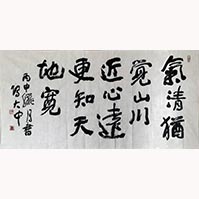 氣清猶
覺山川
近心遠
更知天
地寬
丙申月書
大中